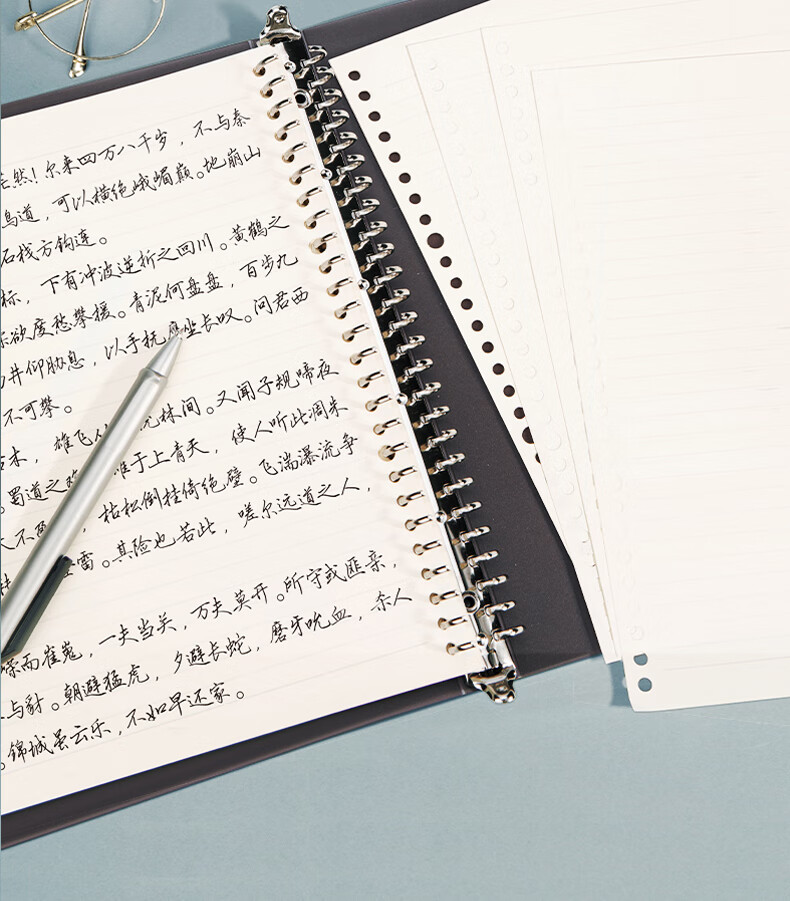 茫然！尔来四万八千岁，不与秦
鸟道，可以横绝峨嵋巅。地崩山
石栈方钩连。
标，下有冲波逆折之回川。黄鹤之
欲度愁攀援。青泥何盘盘，百步九
井仰胁息，以手抚膺坐长叹。问君西
不可攀。
古木，雄飞 林间。又闻子规啼夜
。蜀道之难 难于上青天，使人听此凋朱
天不盈 ，枯松倒挂倚绝壁。飞湍瀑流争
转 雷。其险也若此，嗟尔远道之人，
嵘而崔嵬，一夫当关，万夫莫开。所守或匪亲，
与豺。朝避猛虎，夕避长蛇，磨牙吮血，杀人
。锦城虽云乐，不如早还家。